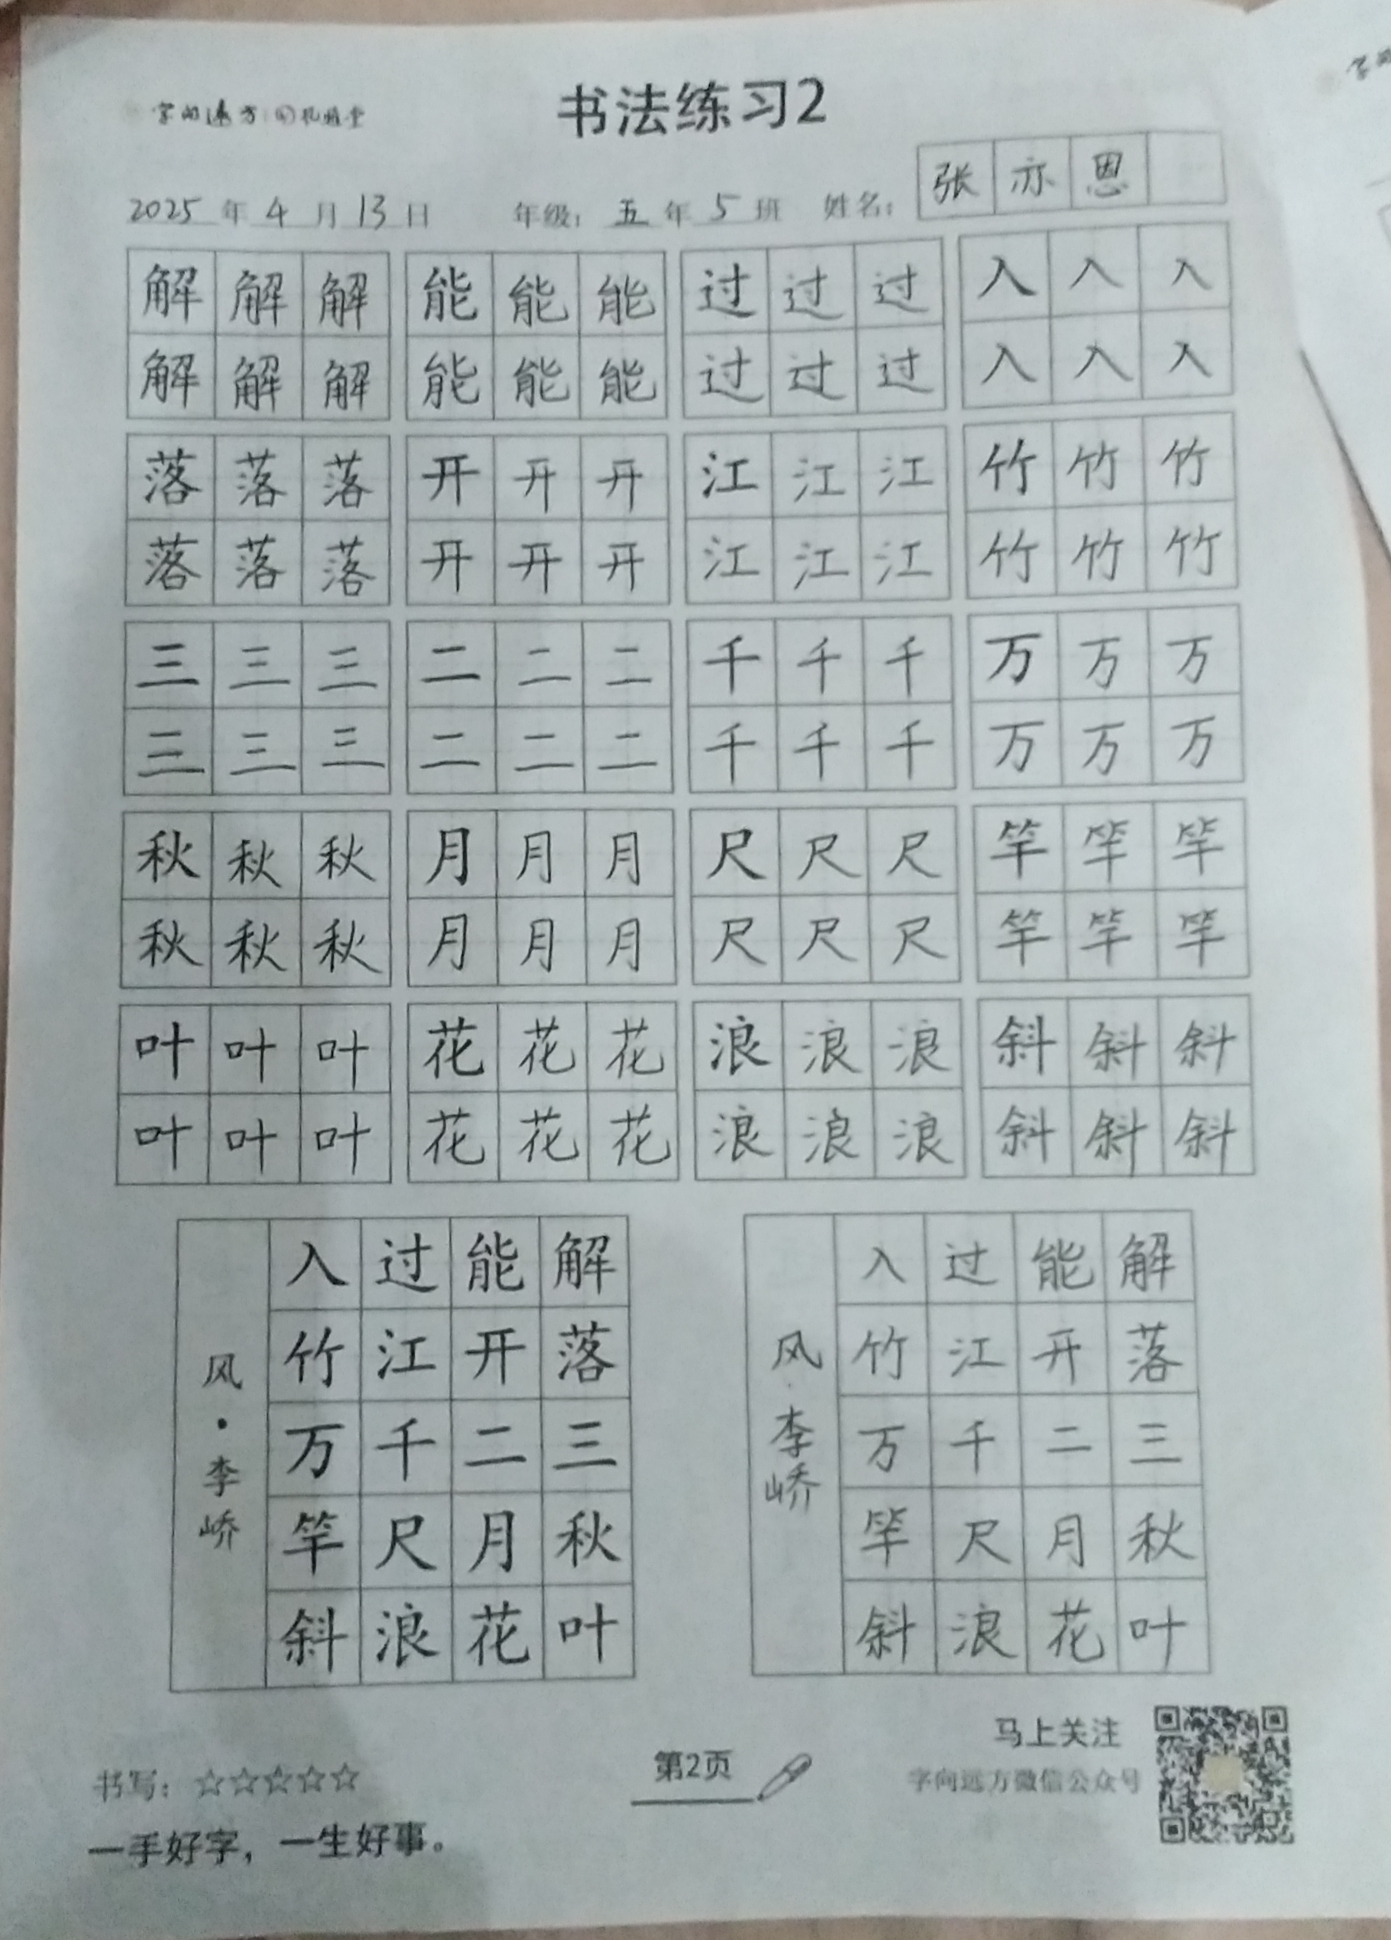 字向远方
书法练习2
2025年4月13日 年级：五年5班 姓名：张亦恩
解解解 能能能 过过过 入入入
解解解 能能能 过过过 入入入
落落落 开开开 江江江 竹竹竹
落落落 开开开 江江江 竹竹竹
三三三 二二二 千千千 万万万
三三三 二二二 千千千 万万万
秋秋秋 月月月 尺尺尺 竿竿竿
秋秋秋 月月月 尺尺尺 竿竿竿
叶叶叶 花花花 浪浪浪 斜斜斜
叶叶叶 花花花 浪浪浪 斜斜斜
解落三秋叶
能开二月花
过江千尺浪
入竹万竿斜
风·李峤
解落三秋叶
能开二月花
过江千尺浪
入竹万竿斜
风·李峤
书写：☆☆☆☆☆
一手好字，一生好事。
第2页
马上关注
字向远方微信公众号